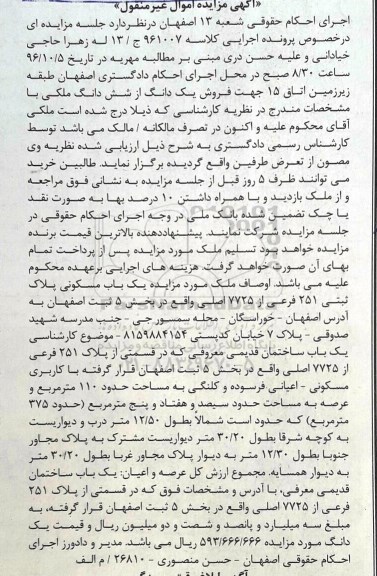 «آگهی مزایده اموال غیرمنقول»
اجرای احکام حقوقی شعبه ۱۳ اصفهان درنظردارد جلسه مزایده ای
درخصوص پرونده اجرایی کلاسه ۹۶۱۰۰۷ ج / ۱۳ له زهرا حاجی
خیادانی و علیه حسن دری مبنی بر مطالبه مهریه در تاریخ ۹۶/۱۰/۵
ساعت ۸/۳۰ صبح در محل اجرای احکام دادگستری اصفهان طبقه
زیرزمین اتاق ۱۵ جهت فروش یک دانگ از شش دانگ ملکی با
مشخصات مندرج در نظریه کارشناسی که ذیلا درج شده است ملکی
آقای محکوم علیه و اکنون در تصرف مالکانه / مالک می باشد توسط
کارشناس رسمی دادگستری به شرح ذیل ارزیابی شده نظریه وی
مصون از تعرض طرفین واقع گردیده برگزار نماید. طالبین خرید
می توانند ظرف ۵ روز قبل از جلسه مزایده به نشانی فوق مراجعه
و از ملک بازدید و با همراه داشتن ۱۰ درصد بها به صورت نقد
یا چک تضمین شده بانک ملی در وجه اجرای احکام حقوقی در
جلسه مزایده شرکت نمایند. پیشنهاددهنده بالاترین قیمت برنده
مزایده خواهد بود تسلیم ملک مورد مزایده پس از پرداخت تمام
بهای آن صورت خواهد گرفت. هزینه های اجرایی برعهده محکوم
علیه می باشد. اوصاف ملک مورد مزایده یک باب مسکونی پلاک
ثبتی ۲۵۱ فرعی از ۷۷۲۵ اصلی واقع در بخش ۵ ثبت اصفهان به
آدرس اصفهان - خوراسگان - محله سمسور جی - جنب مدرسه شهید
صدوقی - پلاک ۷ خیابان کدپستی ۸۱۵۹۸۸۴۱۵۴ - موضوع کارشناسی
یک باب ساختمان قدیمی معروفی که در قسمتی از پلاک ۲۵۱ فرعی
از ۷۷۲۵ اصلی واقع در بخش ۵ ثبت اصفهان قرار گرفته با کاربری
مسکونی - اعیانی فرسوده و کلنگی به مساحت حدود ۱۱۰ مترمربع و
عرصه به مساحت حدود سیصد و هفتاد و پنج مترمربع (حدود ۳۷۵
مترمربع) که حدود است شمالاً بطول ۱۲/۵۰ متر درب و دیواریست
به کوچه شرقا بطول ۳۰/۲۰ متر دیواریست مشترک به پلاک مجاور
جنوبا بطول ۱۲/۳۰ متر به دیوار پلاک مجاور غربا بطول ۳۰/۲۰ متر
به دیوار همسایه. مجموع ارزش کل عرصه و اعیان: یک باب ساختمان
قدیمی معرفی، با آدرس و مشخصات فوق که در قسمتی از پلاک ۲۵۱
فرعی از ۷۷۲۵ اصلی واقع در بخش ۵ ثبت اصفهان قرار گرفته، به
مبلغ سه میلیارد و پانصد و شصت و دو میلیون ریال و قیمت یک
دانگ مورد مزایده ۵۹۳/۶۶۶/۶۶۶ ریال می باشد. مدیر و دادورز اجرای
احکام حقوقی اصفهان - حسن منصوری - ۲۶۸۱۰ / م الف